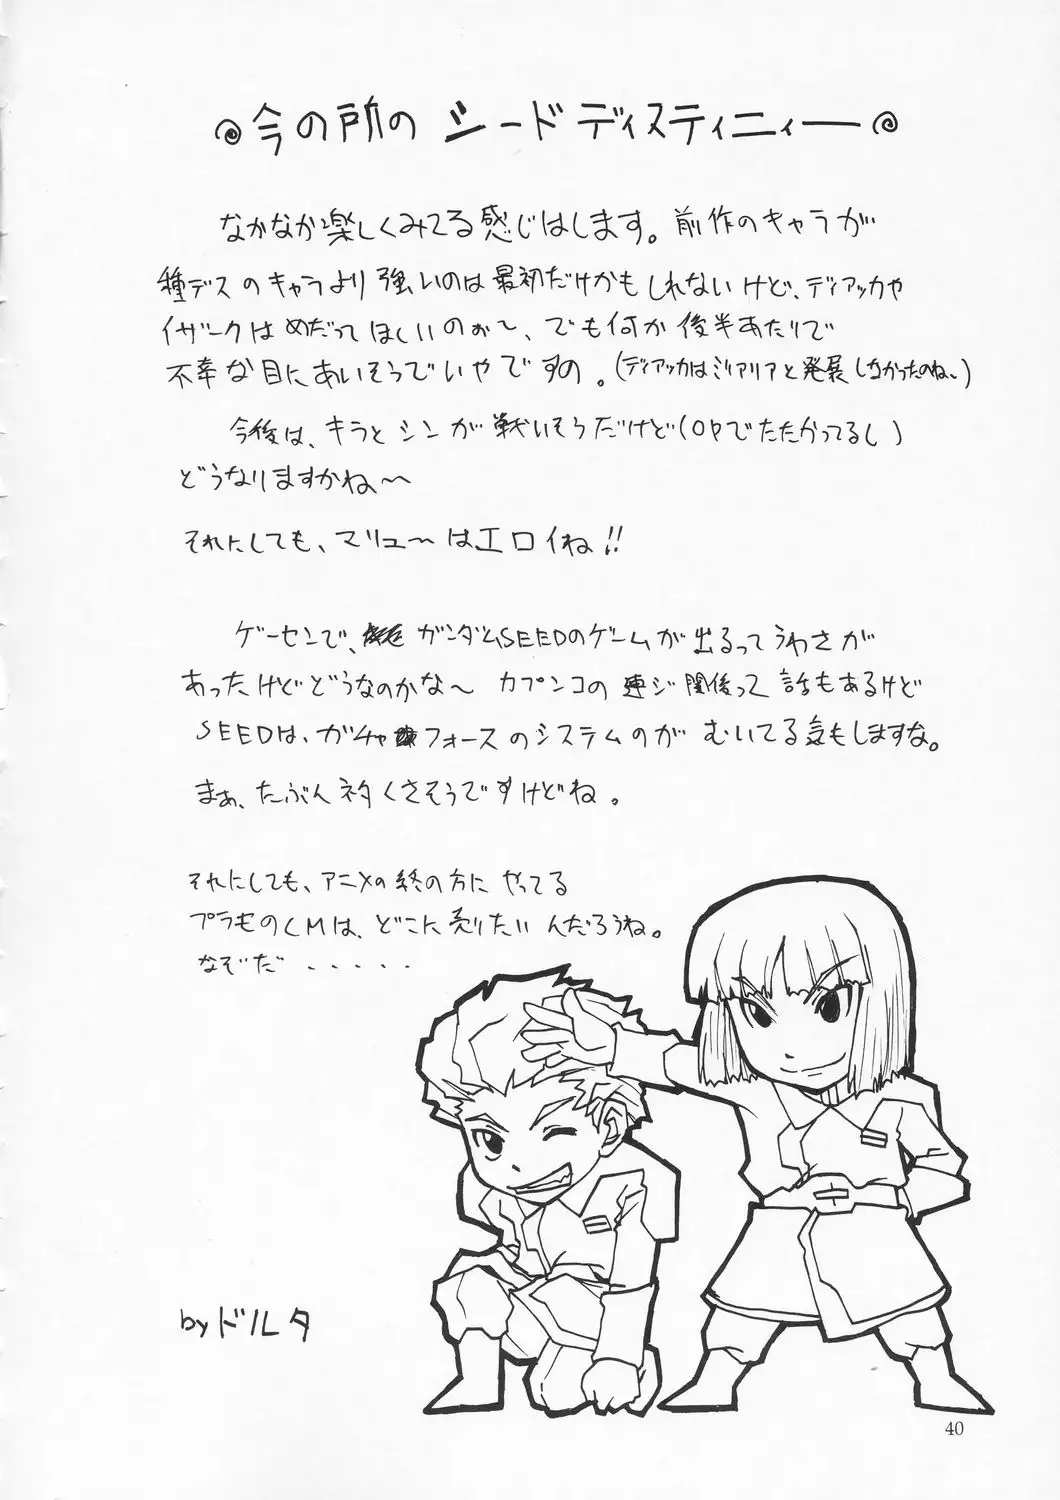 今の所の シード ディスティニィー
なかなか楽しくみてる感じはします。前作のキャラが
種デスのキャラより強いのは最初だけかもしれないけど、ディアッカや
イザークはめだってほしいのぉ〜、でも何か後半あたりで
不幸な目にあいそうでいやですの。(ディアッカはミリアリアと発展しなかったのね〜)
今後は、キラとシンが戦いそうだけど(OPでたたかってるし)
どうなりますかね〜
それにしても、マリュ〜はエロイね!!
ゲーセンで、ガンダムSEEDのゲームが出るってうわさが
あったけどどうなのかな〜 カプンコの連ジ関係って話もあるけど
SEEDは、ガチャフォースのシステムのがむいてる気もしますな。
まぁ、たぶんネタくさそうですけどね。
それにしても、アニメの終の方にやってる
プラモのCMは、どこに売りたいんだろうね。
なぞだ ・・・・・
by ドルタ
40